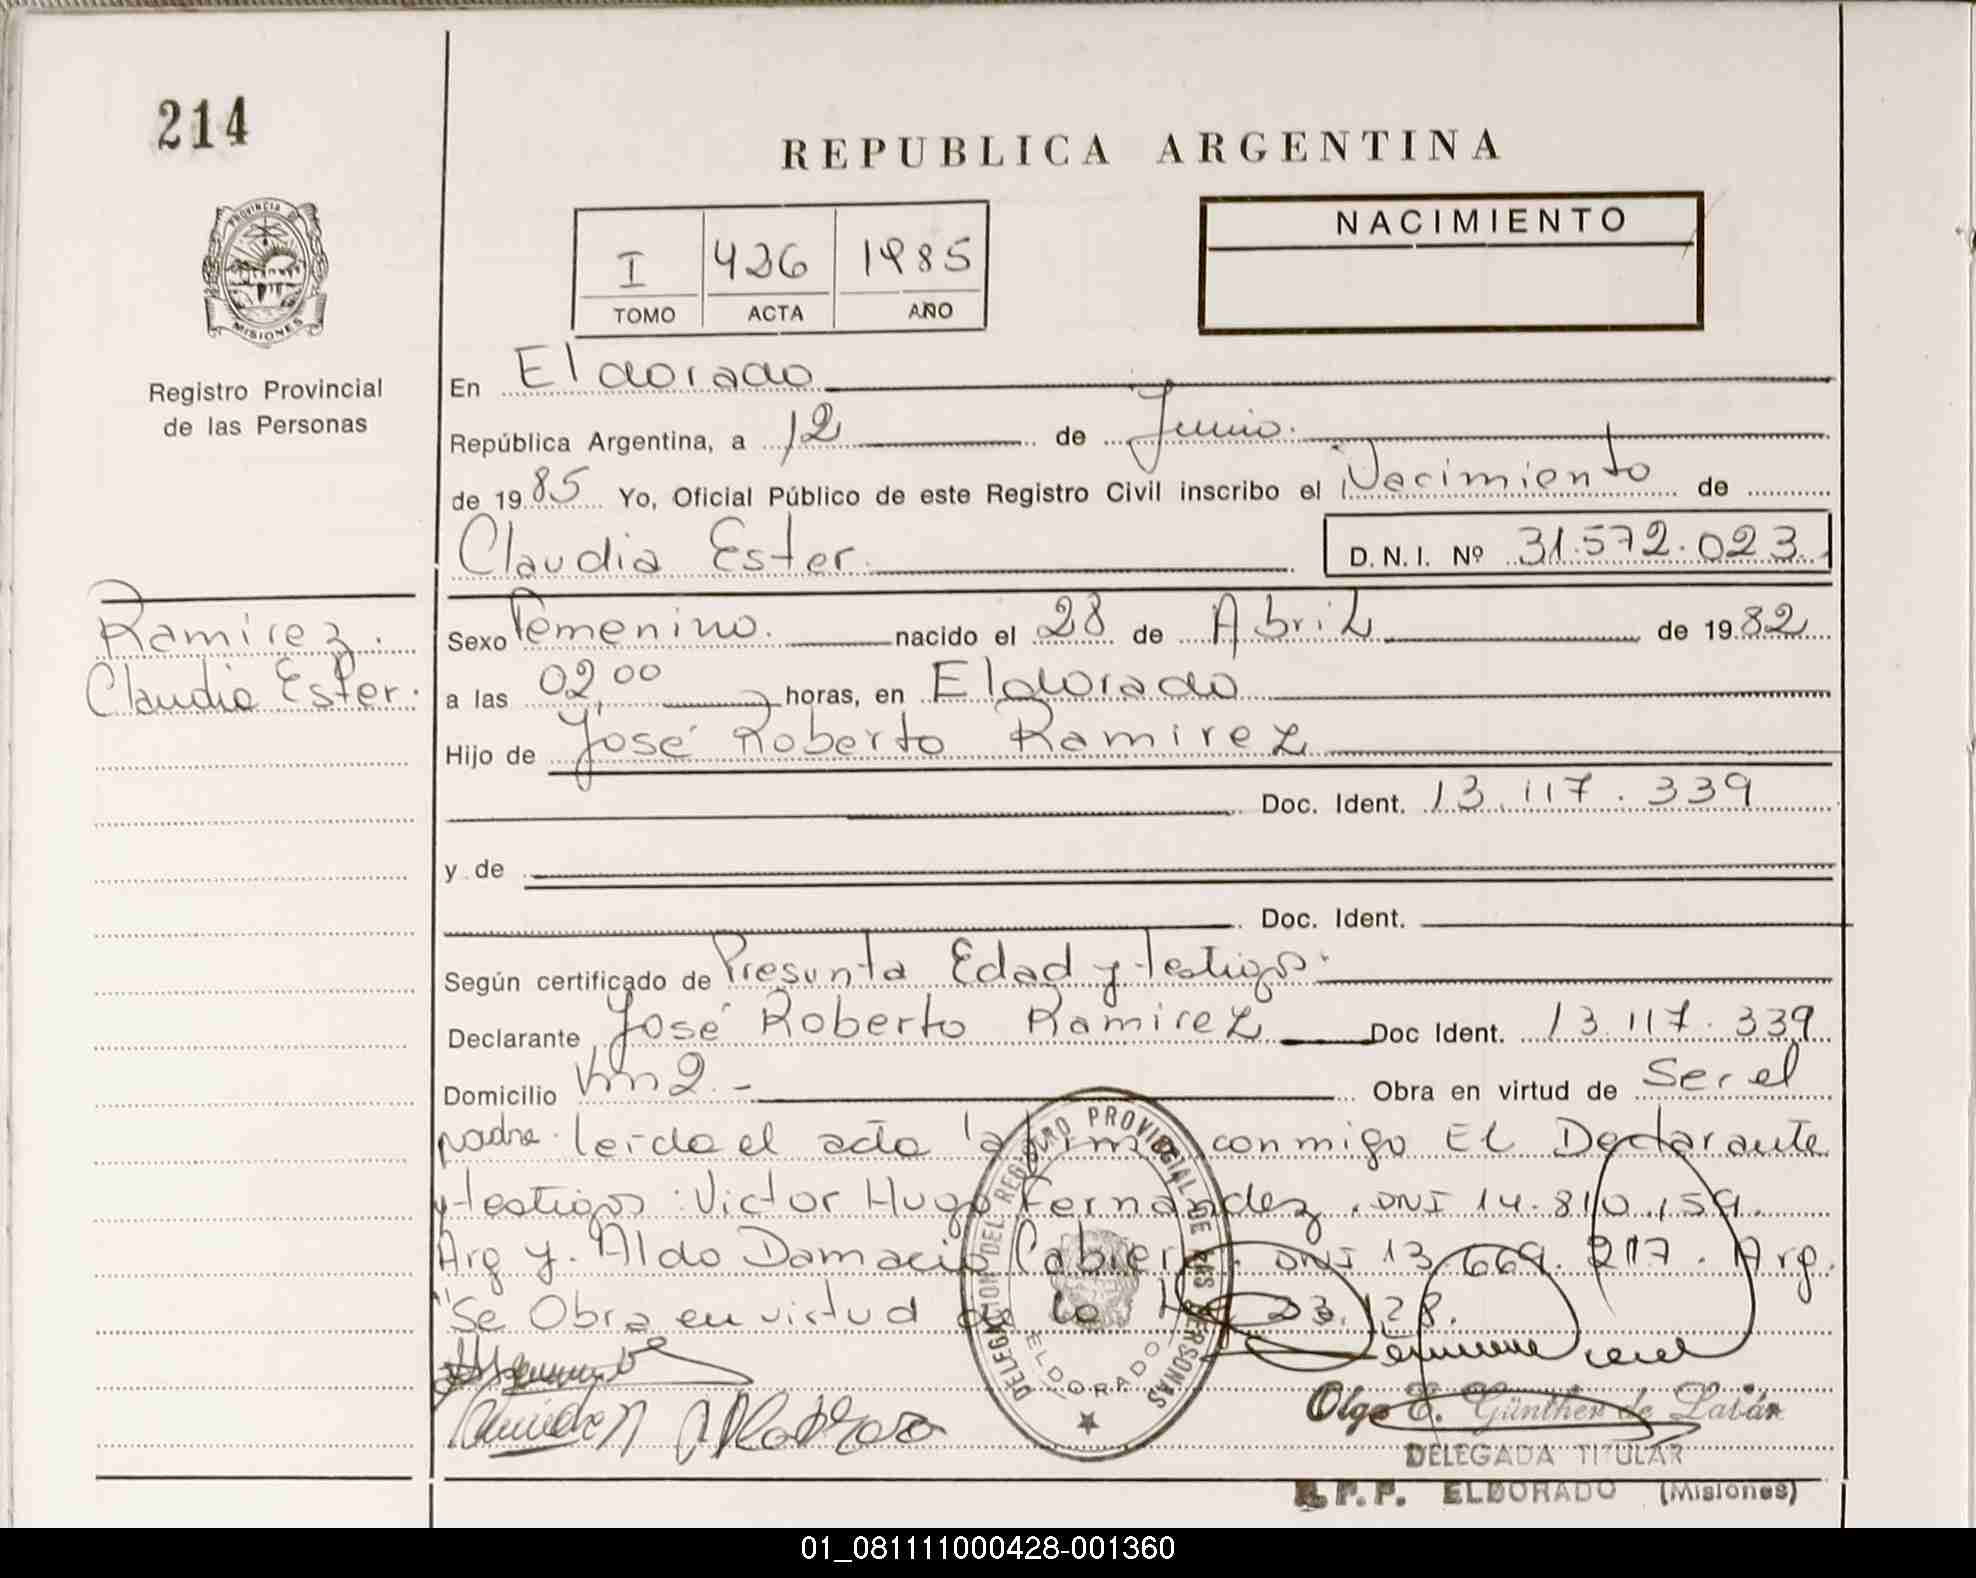 214
REPUBLICA ARGENTINA
PROVINCIA DE
MISIONES
Registro Provincial
de las Personas
I 426 1985
TOMO ACTA AÑO
NACIMIENTO
En Eldorado
República Argentina, a 12 de Junio.
de 1985 Yo, Oficial Público de este Registro Civil inscribo el Nacimiento de
Claudia Ester. D.N.I. Nº 31.572.023
Ramirez.
Claudia Ester.
Sexo Femenino. nacido el 28 de Abril de 1982
a las 02,00 horas, en Eldorado
Hijo de José Roberto Ramirez
Doc. Ident. 13.117.339
y de
Doc. Ident.
Según certificado de Presunta Edad y testigos.
Declarante José Roberto Ramirez Doc Ident. 13.117.339
Domicilio km 2.- Obra en virtud de Ser el
padre. leída el acta la firma conmigo El Declarante
y testigos: Victor Hugo Fernandez, DNI 14.810.159.
Arg y. Aldo Damacio DNI 13.669.217. Arg.
"Se Obra en virtud de la 23.128.
DELEGACION DEL REGISTRO PROVINCIAL DE LAS PERSONAS
ELDORADO
Olga E. Günther de
DELEGADA TITULAR
R.P.P. ELDORADO (Misiones)
01_081111000428-001360